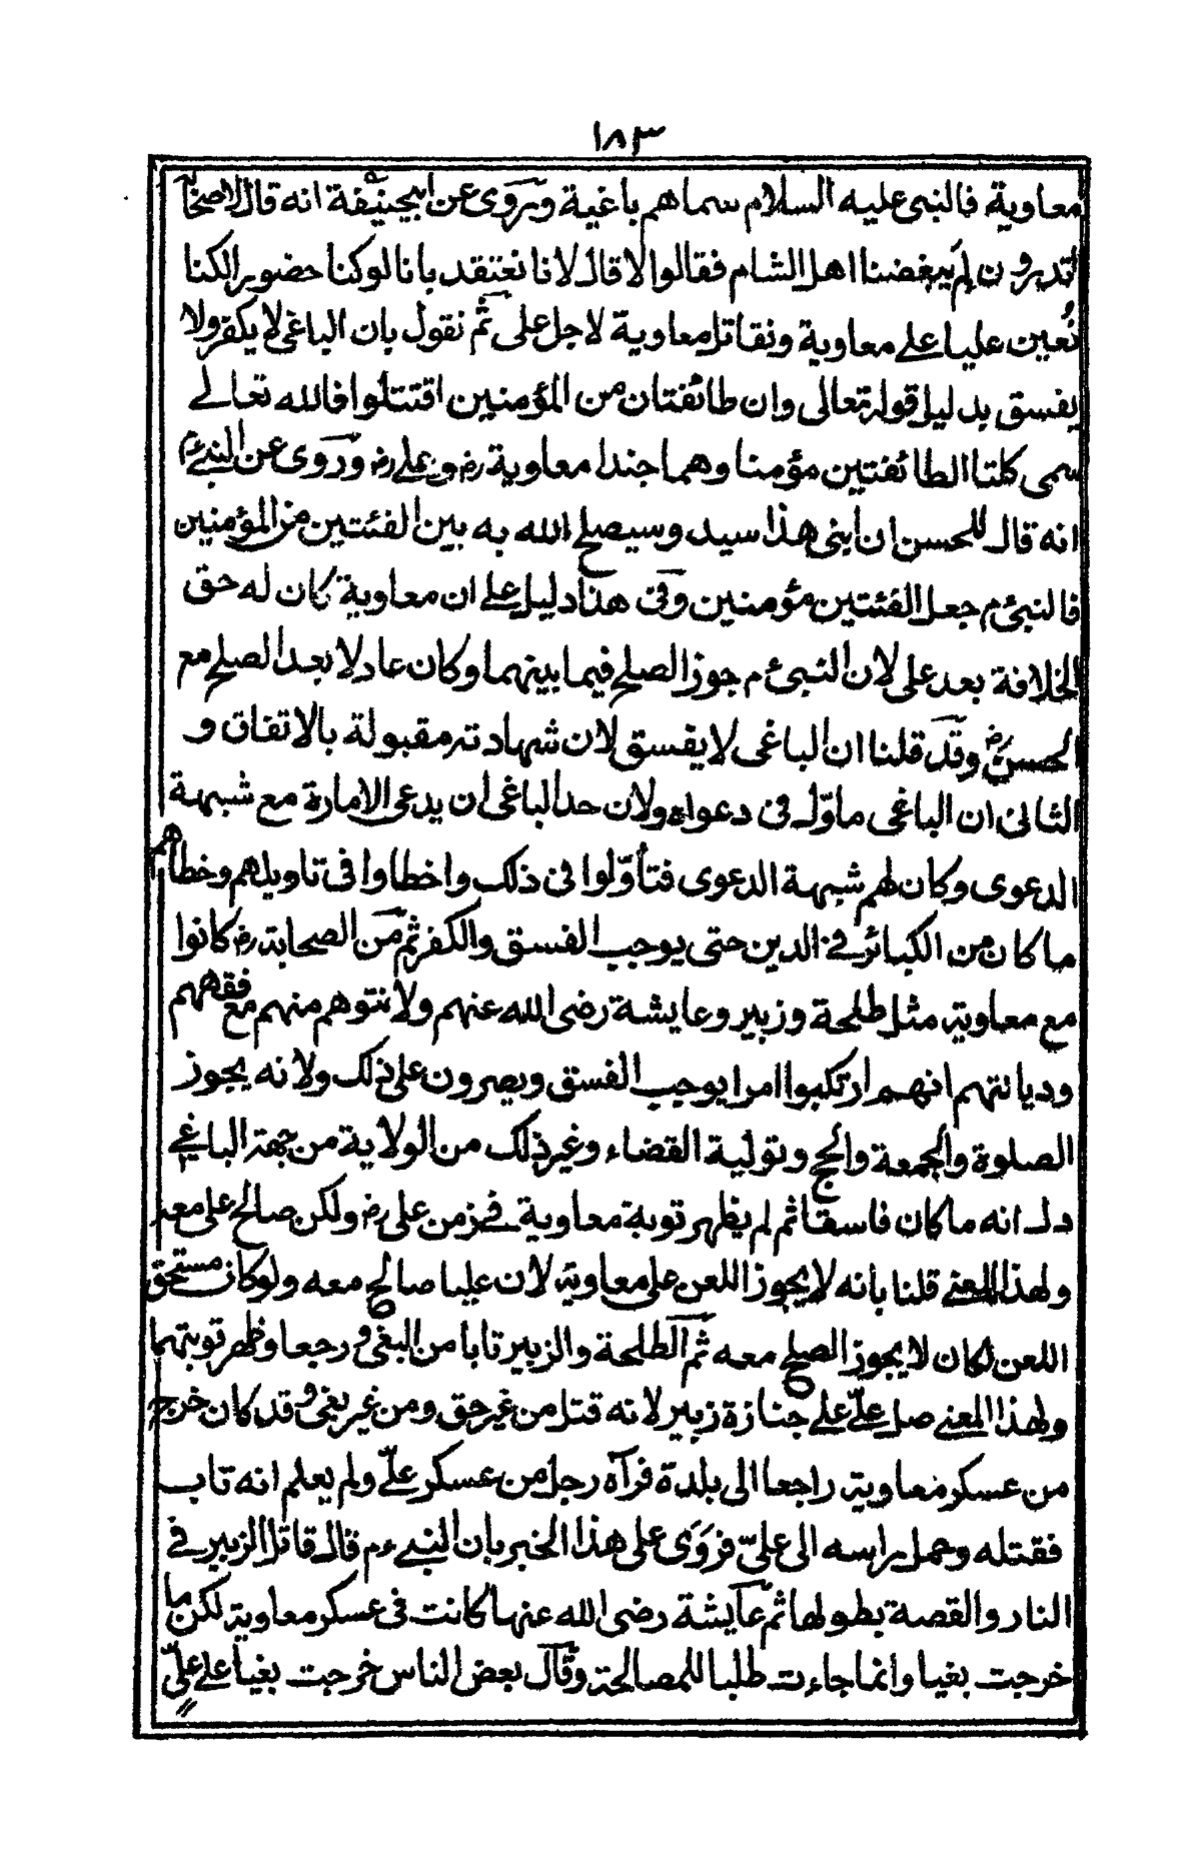 ١٨٣
معاوية فالنبى عليه السلام سماهم باغية وَرَوى عن ابيحنيفة انه قال لاصحابه
اتدرون لِمَ يبغضنا اهل الشام فقالوا لا قال لانا نعتقد بانا لو كنا حضورا لكنا
نُعين عليا على معاوية ونقاتل معاوية لاجل على ثم نقول بان الباغى لا يكفر ولا
يفسق بدليل قوله تعالى وان طائفتان من المؤمنين اقتتلوا فالله تعالى
سمى كلتا الطائفتين مؤمنا وهما جندا معاوية رض وعلى رض وروى عن النبى ءم
انه قال للحسن ان ابنى هذا سيد وسيصلح الله به بين الفئتين من المؤمنين
فالنبى ءم جعل الفئتين مؤمنين وفى هذا دليل على ان معاوية كان له حق
الخلافة بعد على لان النبى ءم جوز الصلح فيما بينهما وكان عادلا بعد الصلح مع
الحسن رض وقد قلنا ان الباغى لا يفسق لان شهادته مقبولة بالاتفاق و
الثانى ان الباغى ماوّل فى دعواه ولان حد الباغى ان يدعى الامارة مع شبهة
الدعوى وكان لهم شبهة الدعوى فتأوّلوا فى ذلك واخطاوا فى تاويلهم وخطاهم
ما كان من الكبائر فى الدين حتى يوجب الفسق والكفر ثم من الصحابة رض كانوا
مع معاوية مثل طلحة وزبير وعايشة رضى الله عنهم ولا نتوهم منهم مع فقههم
وديانتهم انهم ارتكبوا امرا يوجب الفسق ويصرون على ذلك ولانه يجوز
الصلوة والجمعة والحج وتولية القضاء وغير ذلك من الولاية من جهة الباغى
دل انه ما كان فاسقا ثم لم يظهر توبة معاوية فى زمن على رض ولكن صالح على معه
ولهذا المعنى قلنا بانه لا يجوز اللعن على معاوية لان عليا صالح معه ولو كان مستحق
اللعن لكان لا يجوز الصلح معه ثم الطلحة والزبير تابا من البغى ورجعا وظهر توبتهما
ولهذا المعنى صل علىّ على جنازة زبير لانه قتل من غير حق ومن غير بغى وقد كان خرج
من عسكر معاوية راجعا الى بلدة فرآه رجل من عسكر علىّ ولم يعلم انه تاب
فقتله وحمل براسه الى علىّ فروَى على هذا الخبر بان النبى ءم قال قاتل الزبير فى
النار والقصة بطولها ثم عايشة رضى الله عنها كانت فى عسكر معاوية لكن ما
خرجت بغيا وانما جاءت طلبا للمصالحة وقال بعض الناس خرجت بغيا على علىّ